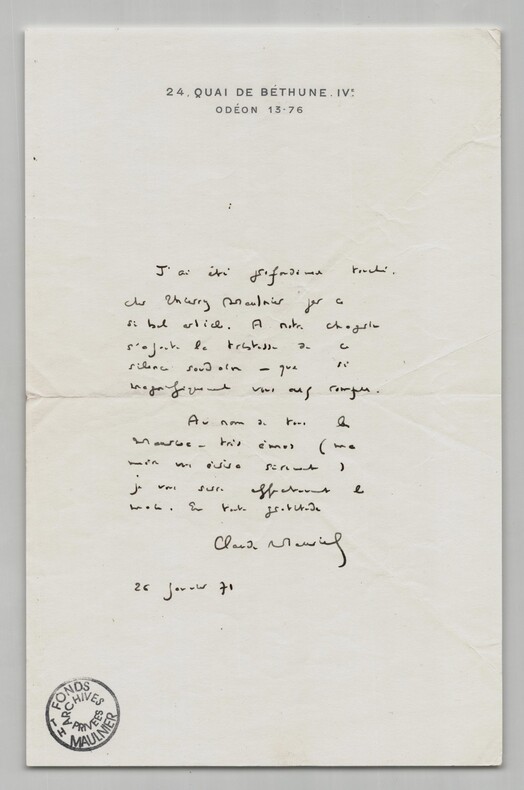 24, QUAI DE BÉTHUNE. IVe
ODÉON 13-76
J'ai été profondément touché,
cher Thierry Maulnier par ce
si bel article. A notre chagrin
s'ajoute la tristesse de ce
silence soudain – que si
magnifiquement vous avez rompu.
Au nom de tous les
Mauriac – très émus (ma
mère en
je vous serre affectueusement la
main. En toute gratitude
Claude Mauriac
26 janvier 71
FONDS
ARCHIVES
PRIVÉES
TH MAULNIER